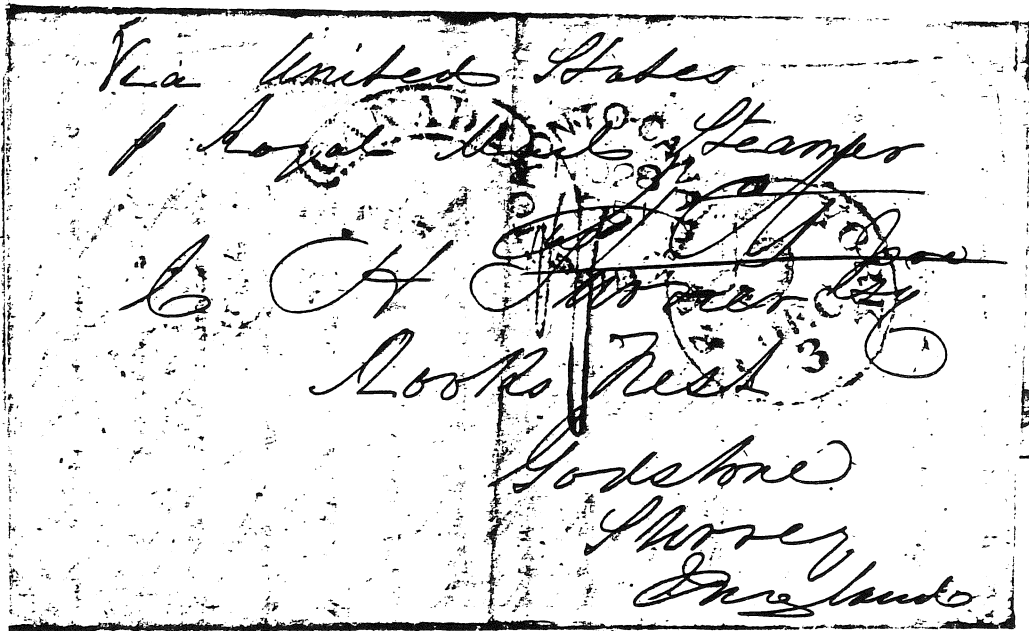 Via United States
p Royal Mail Steamer
C H Turner Esq
Rooks Nest
Godstone
Surrey
England
3